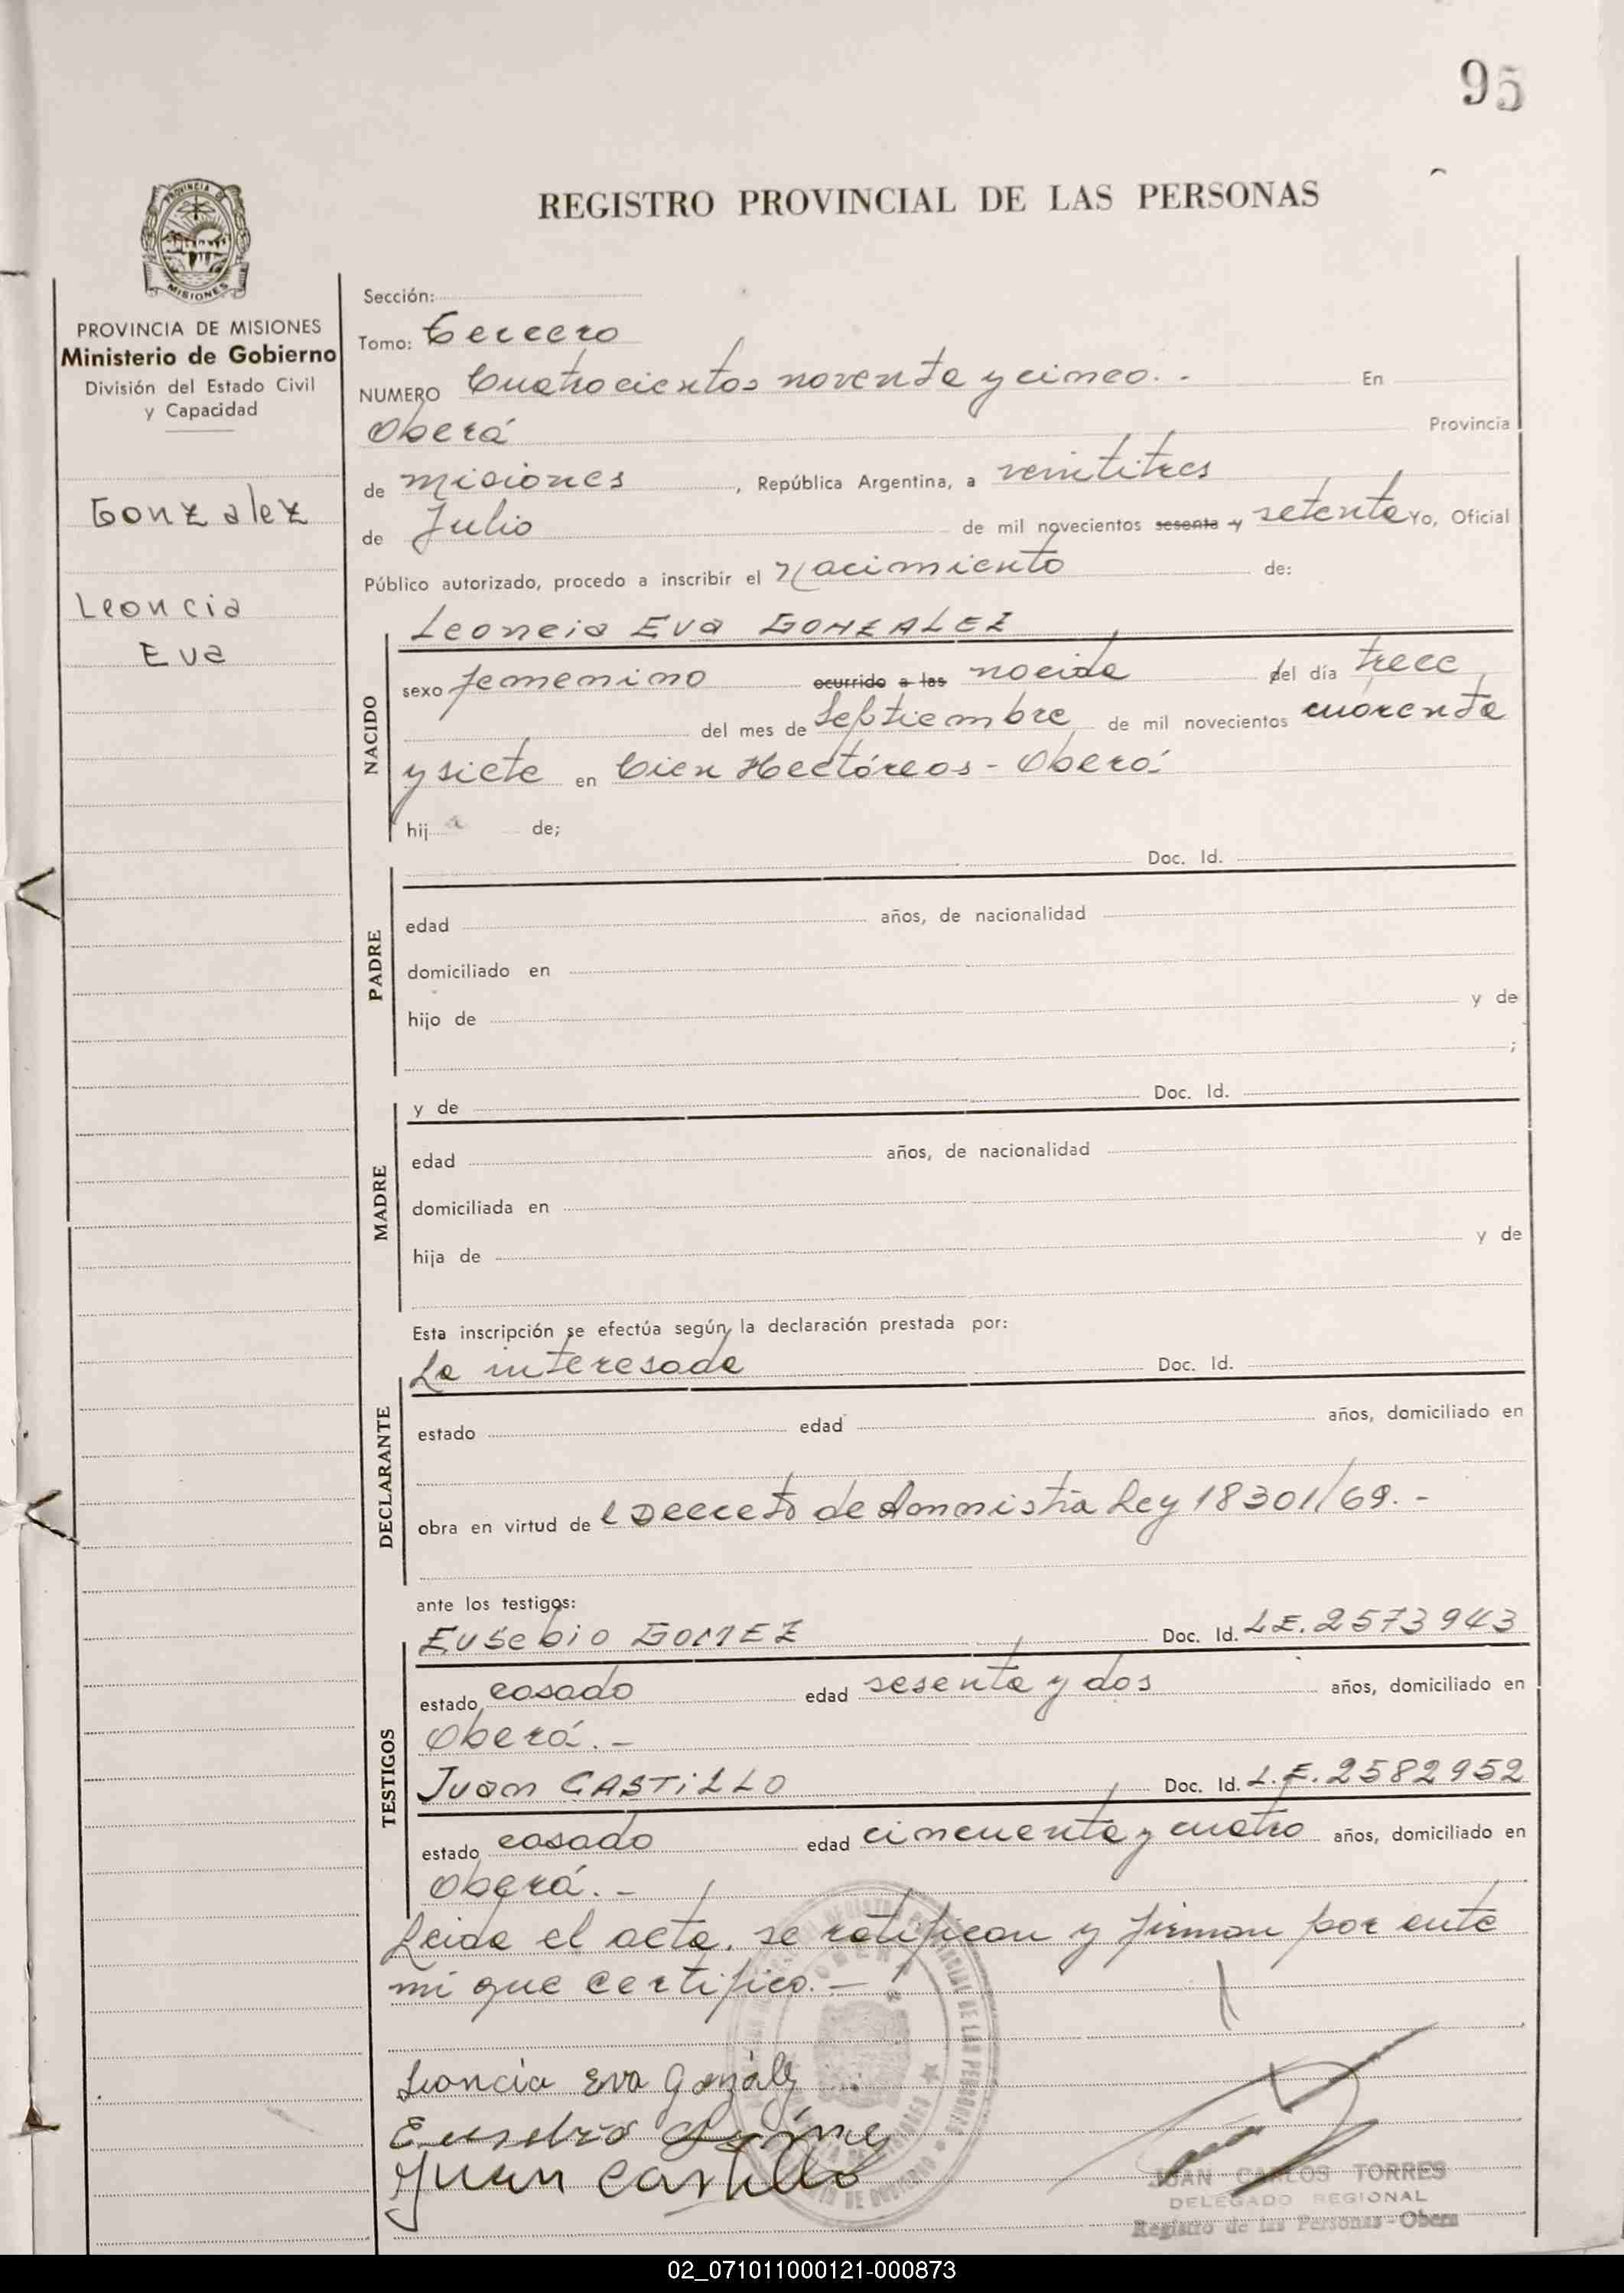 95
REGISTRO PROVINCIAL DE LAS PERSONAS
PROVINCIA DE MISIONES
Ministerio de Gobierno
División del Estado Civil
y Capacidad
Gonzalez
Leoncia
Eva
Sección:
Tomo: Tercero
NUMERO Cuatrocientos noventa y cinco. - En
Oberá Provincia
de misiones, República Argentina, a veintitres
de Julio de mil novecientos sesenta y setenta Yo, Oficial
Público autorizado, procedo a inscribir el Nacimiento de:
NACIDO
Leoncia Eva GONZALEZ
sexo femenino ocurrido a las nacida del día trece
del mes de Septiembre de mil novecientos cuarenta
y siete en Cien Hectáreas - Oberá
hij a de;
PADRE
Doc. Id.
edad años, de nacionalidad
domiciliado en
hijo de y de
;
MADRE
y de Doc. Id.
edad años, de nacionalidad
domiciliada en
hija de y de
Esta inscripción se efectúa según la declaración prestada por:
DECLARANTE
La interesada Doc. Id.
estado edad años, domiciliado en
obra en virtud de l Decreto de Amnistia Ley 18301/69. -
ante los testigos:
TESTIGOS
Eusebio GOMEZ Doc. Id. L.E. 2573943
estado casado edad sesenta y dos años, domiciliado en
Oberá. -
Juan CASTILLO Doc. Id. L.E. 2582952
estado casado edad cincuenta y cuatro años, domiciliado en
Oberá. -
Leida el acta, se ratifican y firman por ante
mi que certifico. -
Leoncia Eva Gonzálz
Juan Castillo
JUAN CARLOS TORRES
DELEGADO REGIONAL
Registro de las Personas - Obera
02_071011000121-000873